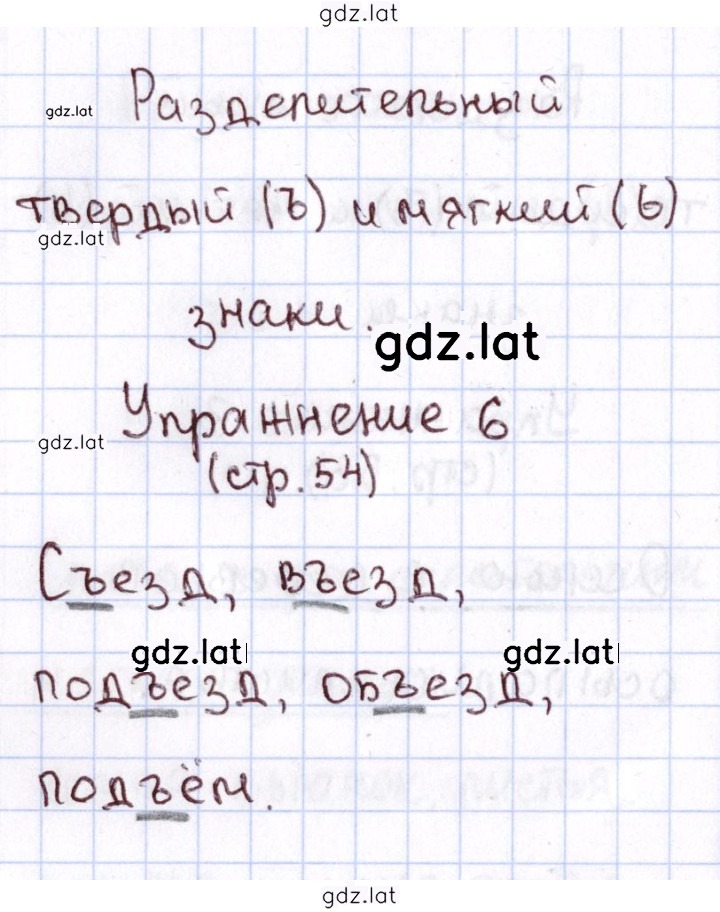 gdz.lat
Разделительный
gdz.lat
твердый (ъ) и мягкий (ь)
gdz.lat
знаки.
gdz.lat
Упражнение 6
gdz.lat
(стр. 54)
Съезд, въезд,
gdz.lat gdz.lat
подъезд, объезд,
подъём.
gdz.lat